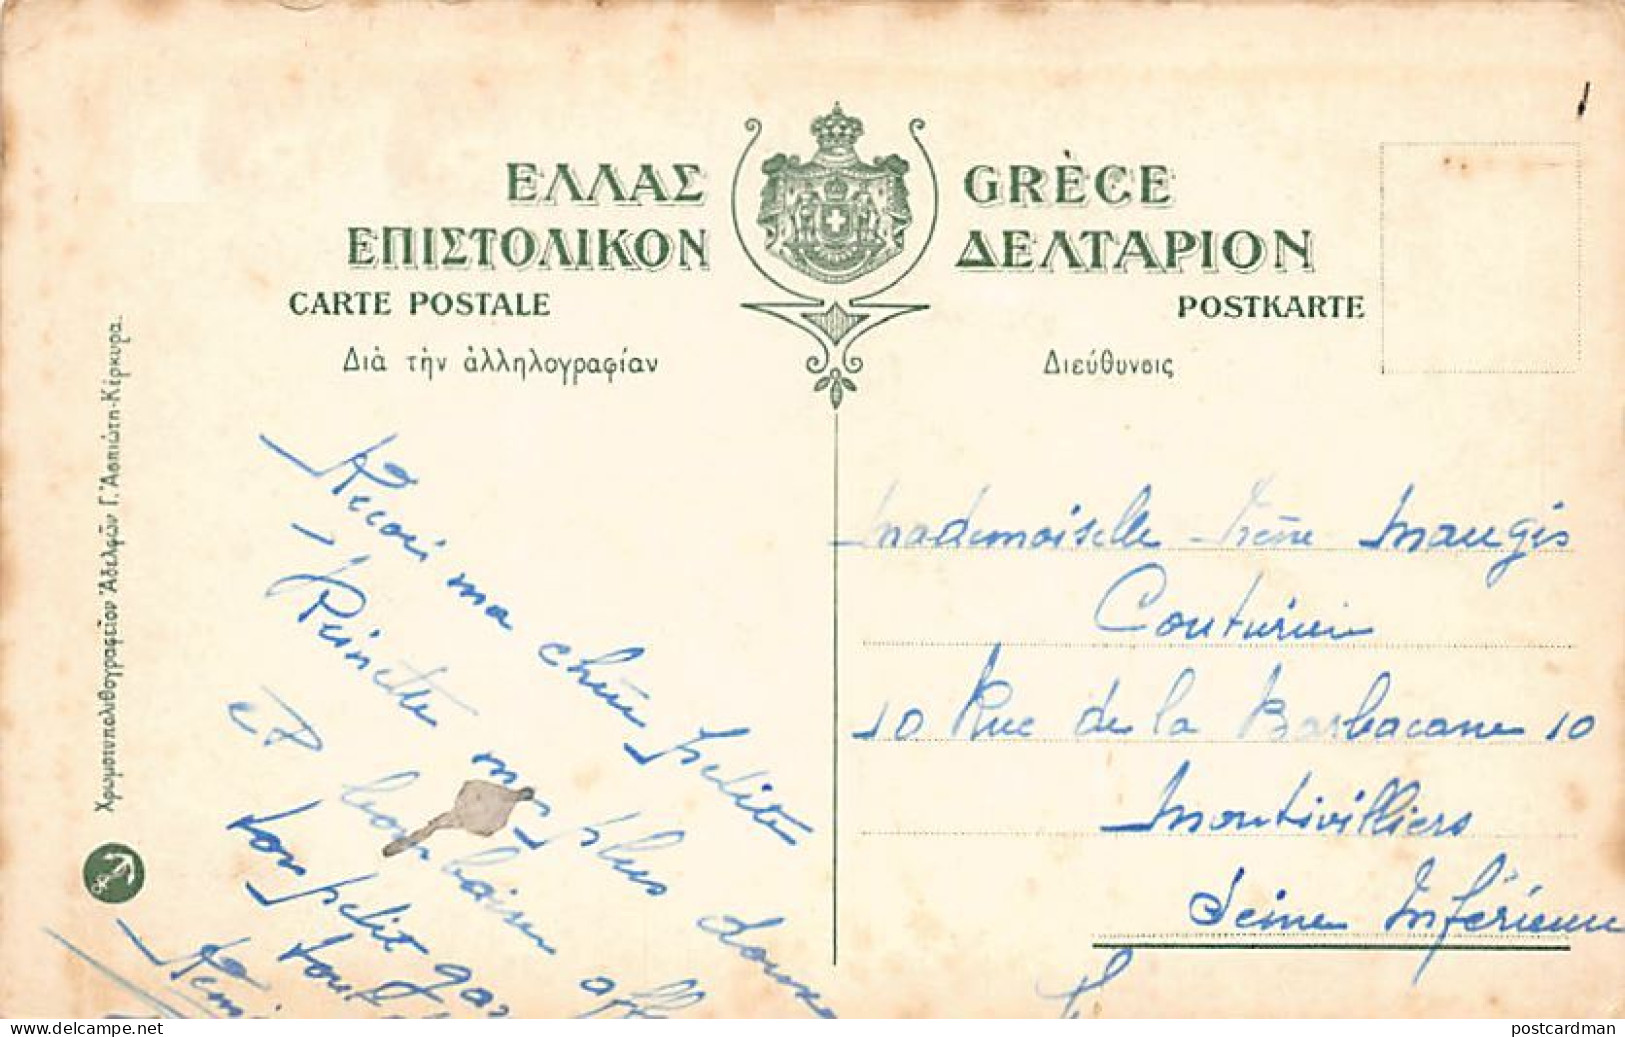 ΕΛΛΑΣ GRÈCE
ΕΠΙΣΤΟΛΙΚΟΝ ΔΕΛΤΑΡΙΟΝ
CARTE POSTALE POSTKARTE
Διὰ τὴν ἀλληλογραφίαν Διεύθυνσις
Χρωμοτυπολιθογραφεῖον Ἀδελφῶν Γ. Ἀσπιώτη-Κέρκυρα.
Recois ma chère petite
Reinette mes plus doux
et bon baiser
ton petit
tout
Mademoiselle Irène Maugis
Couturière
10 Rue de la Barbacane 10
Montivilliers
Seine Inférieure
www.delcampe.net
postcardman